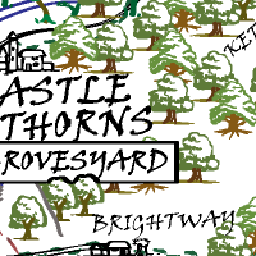 ASTLE
THORNS
ROVESYARD
BRIGHTWAY
KET